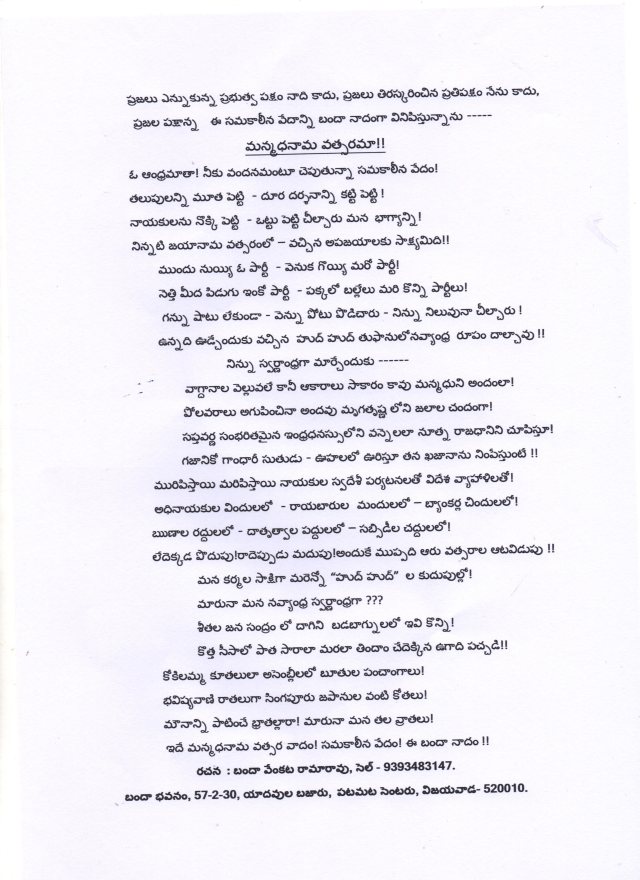 ప్రజలు ఎన్నుకున్న ప్రభుత్వ పక్షం నాది కాదు, ప్రజలు తిరస్కరించిన ప్రతిపక్షం నేను కాదు,
ప్రజల పక్షాన్న ఈ సమకాలీన వేదాన్ని బందా నాదంగా వినిపిస్తున్నాను -----
మన్మధనామ వత్సరమా!!
ఓ ఆంధ్రమాతా! నీకు వందనమంటూ చెపుతున్నా సమకాలీన వేదం!
తలుపులన్ని మూత పెట్టి - దూర దర్శనాన్ని కట్టి పెట్టి !
నాయకులను నొక్కి పెట్టి - ఒట్టు పెట్టి చీల్చారు మన భాగ్యాన్ని!
నిన్నటి జయనామ వత్సరంలో – వచ్చిన అపజయాలకు సాక్ష్యమిది!!
ముందు నుయ్యి ఓ పార్టీ - వెనుక గొయ్యి మరో పార్టీ!
నెత్తి మీద పిడుగు ఇంకో పార్టీ - పక్కలో బల్లేలు మరి కొన్ని పార్టీలు!
గన్ను పాటు లేకుండా - వెన్ను పోటు పొడిచారు - నిన్ను నిలువునా చీల్చారు !
ఉన్నది ఊడ్చేందుకు వచ్చిన హుద్ హుద్ తుఫానులోనవ్యాంధ్ర రూపం దాల్చావు !!
నిన్ను స్వర్ణాంధ్రగా మార్చేందుకు ------
వాగ్దానాల వెల్లువలే కానీ ఆకారాలు సాకారం కావు మన్మధుని అందంలా!
పోలవరాలు అగుపించినా అందవు మృగతృష్ణ లోని జలాల చందంగా!
సప్తవర్ణ సంభరితమైన ఇంద్రధనస్సులోని వన్నెలలా నూత్న రాజధానిని చూపిస్తూ!
గజానికో గాంధారీ సుతుడు - ఊహలలో ఊరిస్తూ తన ఖజానాను నింపేస్తుంటే !!
మురిపిస్తాయి మరిపిస్తాయి నాయకుల స్వదేశీ పర్యటనలతో విదేశ వ్యాహాళిలతో!
అధినాయకుల విందులలో - రాయబారుల మందులలో – బ్యాంకర్ల చిందులలో!
ఋణాల రద్దులలో - దాతృత్వాల పద్దులలో – సబ్సిడీల చద్దులలో!
లేదెక్కడ పొదుపు!రాదెప్పుడు మదుపు!అందుకే ముప్పది ఆరు వత్సరాల ఆటవిడుపు !!
మన కర్మల సాక్షిగా మరెన్నో "హుద్ హుద్" ల కుదుపుల్లో!
మారునా మన నవ్యాంధ్ర స్వర్ణాంధ్రగా ???
శీతల జన సంద్రం లో దాగిని బడబాగ్నులలో ఇవి కొన్ని!
కొత్త సీసాలో పాత సారాలా మరలా తిందాం చేదెక్కిన ఉగాది పచ్చడి!!
కోకిలమ్మ కూతలులా అసెంబ్లీలలో బూతుల పంచాంగాలు!
భవిష్యవాణి రాతలుగా సింగపూరు జపానుల వంటి కోతలు!
మౌనాన్ని పాటించే భ్రాతల్లారా! మారునా మన తల వ్రాతలు!
ఇదే మన్మధనామ వత్సర వాదం! సమకాలీన వేదం! ఈ బందా నాదం !!
రచన : బందా వేంకట రామారావు, సెల్ - 9393483147.
బందా భవనం, 57-2-30, యాదవుల బజారు, పటమట సెంటరు, విజయవాడ- 520010.